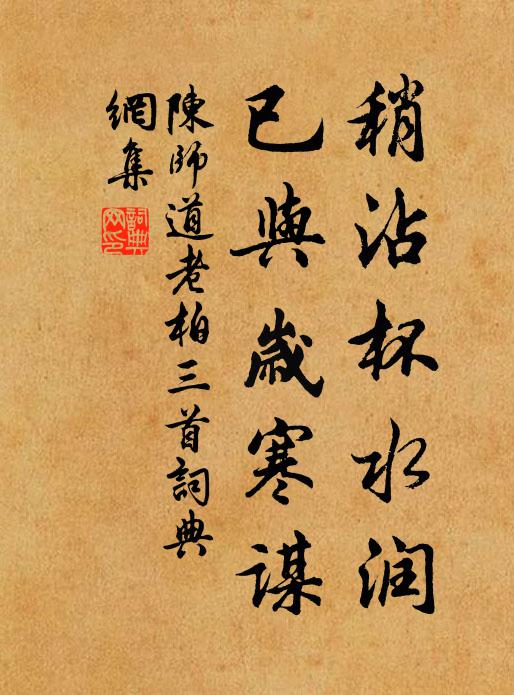 稍沾杯水润
已與歲寒謀
陳師道老柏三首詞典
網集
詞典
网印